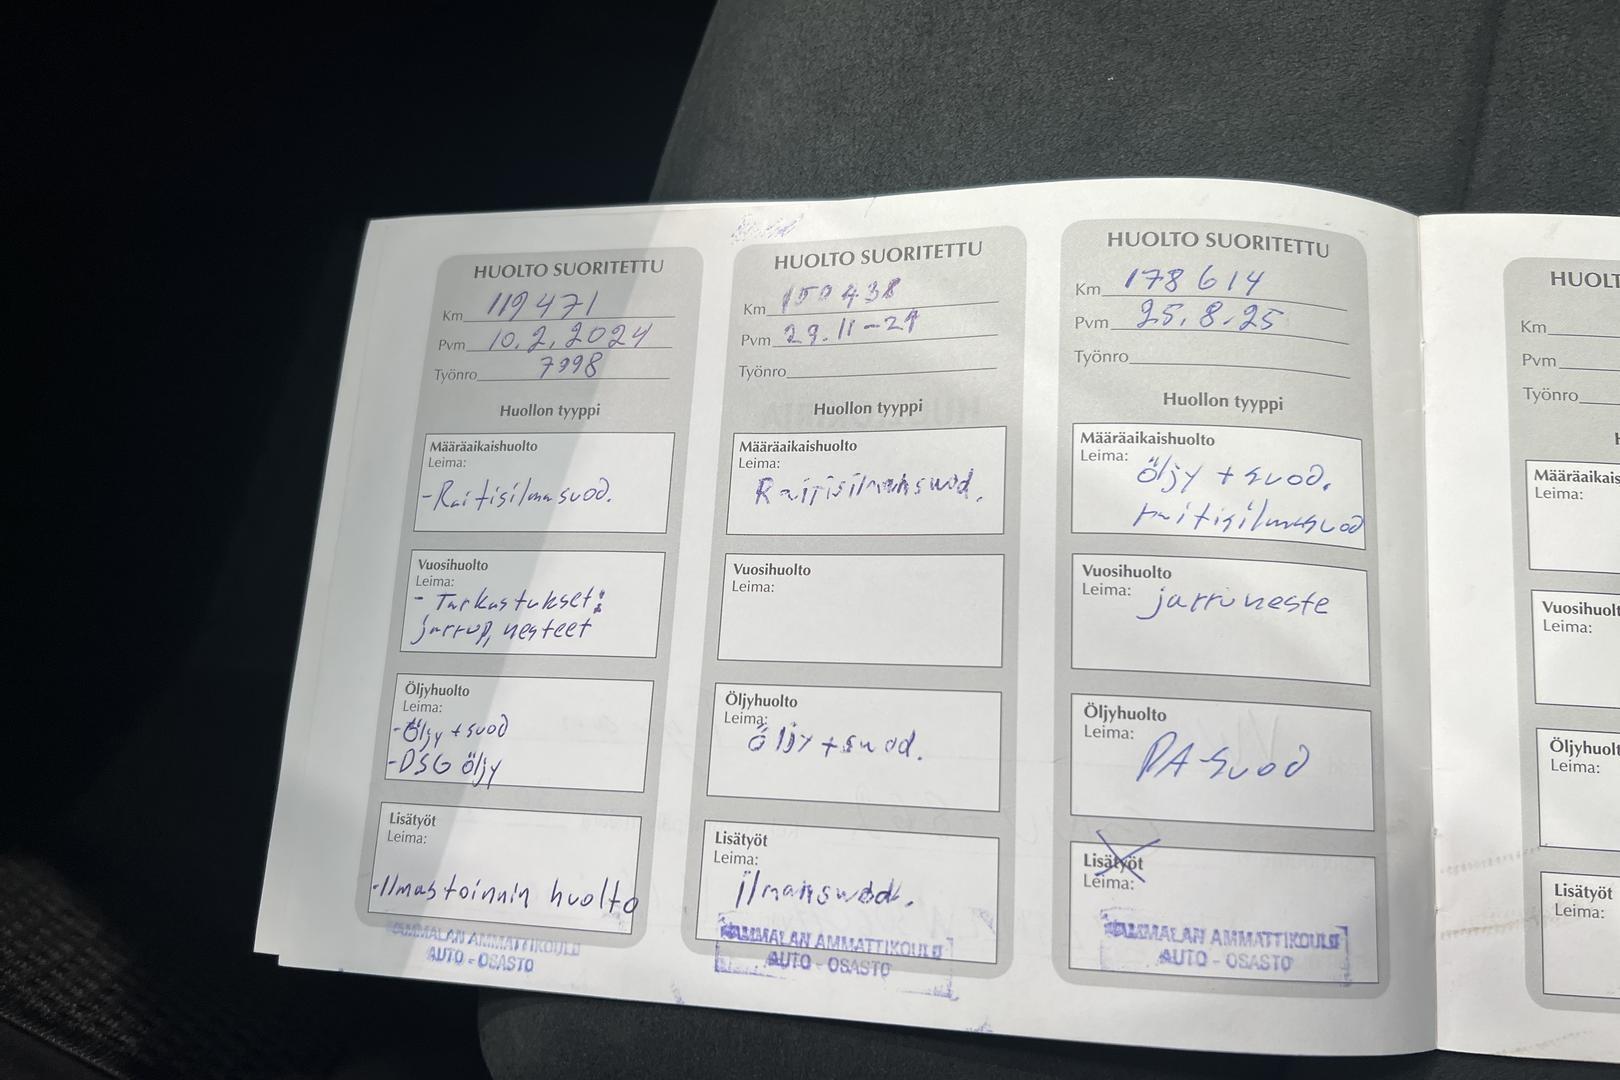 HUOLTO SUORITETTU
Km 119471
Pvm 10.2.2024
Työnro 7998
Huollon tyyppi
Määräaikaishuolto
Leima:
-Raitisilmasuod.
Vuosihuolto
Leima:
- Tarkastukset:
jarrup, nesteet
Öljyhuolto
Leima:
-Öljy + suod
-DSG öljy
Lisätyöt
Leima:
-Ilmastoinnin huolto
VAMMALAN AMMATTIKOULU
AUTO - OSASTO
HUOLTO SUORITETTU
Km 150438
Pvm 29.11-24
Työnro
Huollon tyyppi
Määräaikaishuolto
Leima:
Raitisilmansuod.
Vuosihuolto
Leima:
Öljyhuolto
Leima:
Öljy + suod.
Lisätyöt
Leima:
ilmansuod.
VAMMALAN AMMATTIKOULU
AUTO - OSASTO
HUOLTO SUORITETTU
Km 178614
Pvm 25.8.25
Työnro
Huollon tyyppi
Määräaikaishuolto
Leima:
öljy + suod.
raitisilmasuod
Vuosihuolto
Leima:
jarruneste
Öljyhuolto
Leima:
PA-suod
Lisätyöt
Leima:
VAMMALAN AMMATTIKOULU
AUTO - OSASTO
Km
Pvm
Työnro
Leima:
Leima:
Leima:
Lisätyöt
Leima: